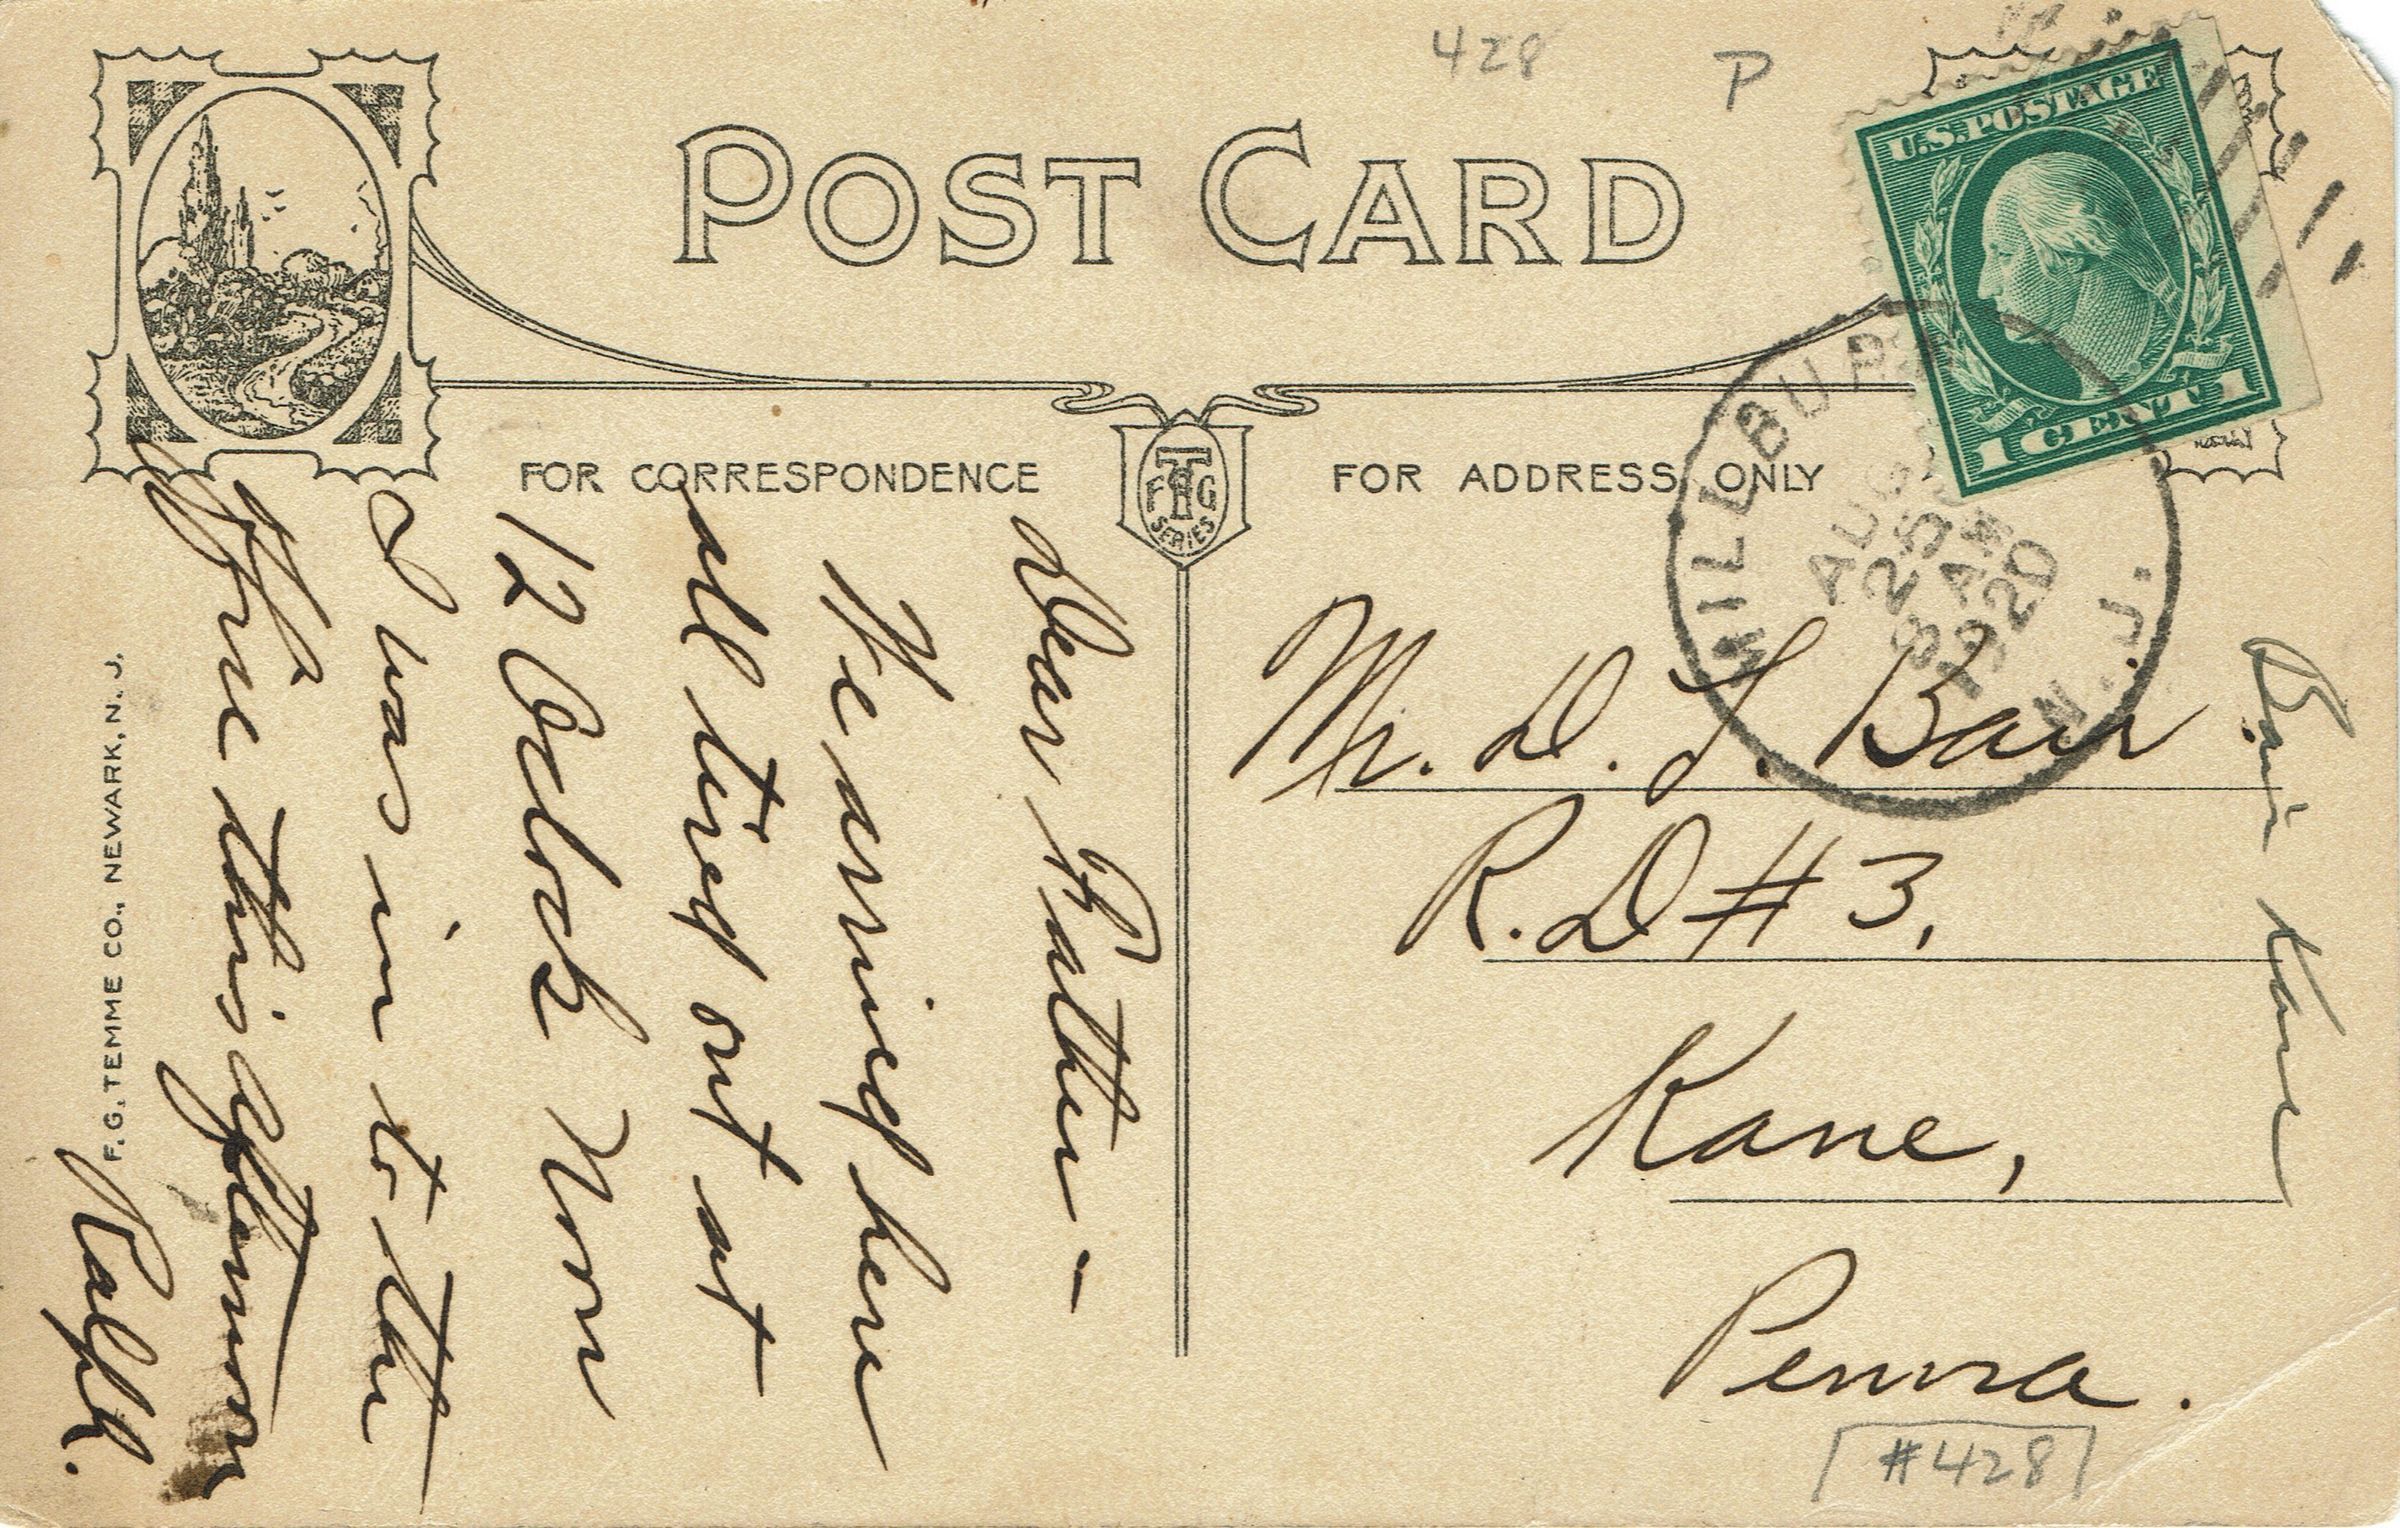 428
P
POST CARD
U.S. POSTAGE
1 CENT 1
MILLBURN
N.J.
AUG
25
8 AM
1920
FOR CORRESPONDENCE
T
F & G
SERIES
FOR ADDRESS ONLY
Dear Father -
We arrived here
all tired out at
12 Oclock Noon
I was in to the
Office this afternoon
Ralph.
Mr. D. L. Bair
R.D # 3,
Kane,
Penna.
Bair Kane
#428
F. G. TEMME CO., NEWARK, N. J.